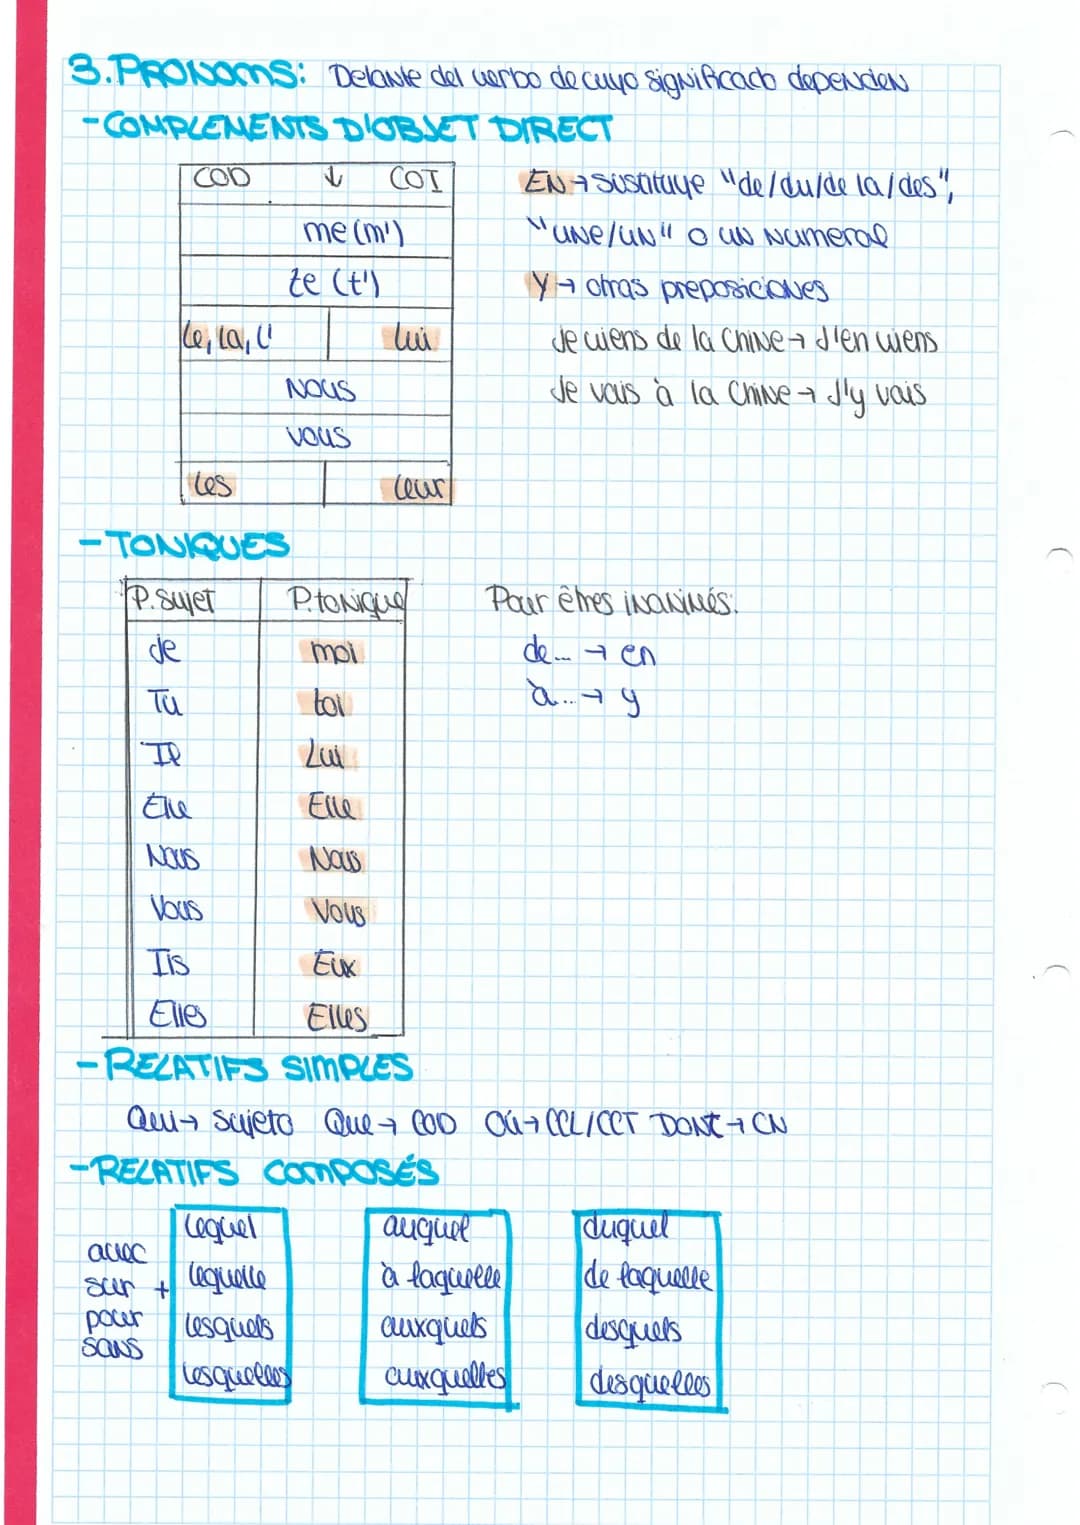 3. PRONOMS: Delante del verbo de cuyo significado dependen
- COMPLEMENTS D'OBJET DIRECT
COD ↓ COI
me (m')
te (t')
le, la, l' lui
NOUS
VOUS
les leur
EN → sustituye "de/du/de la/des",
"une/un" o un numeral
Y → otras preposiciones
Je viens de la Chine → J'en viens
Je vais à la Chine → J'y vais
- TONIQUES
P. Sujet P. tonique
Je moi
Tu toi
Il Lui
Elle Elle
Nous Nous
Vous Vous
Ils Eux
Elles Elles
Pour êtres inanimés:
de... → en
à... → y
- RELATIFS SIMPLES
Qui → Sujeto Que → COD Où → CCL/CCT DONT → CN
- RELATIFS COMPOSÉS
avec
sur +
pour
sans
lequel
lequelle
lesquels
lesquelles
auquel
à laquelle
auxquels
auxquelles
duquel
de laquelle
desquels
desquelles